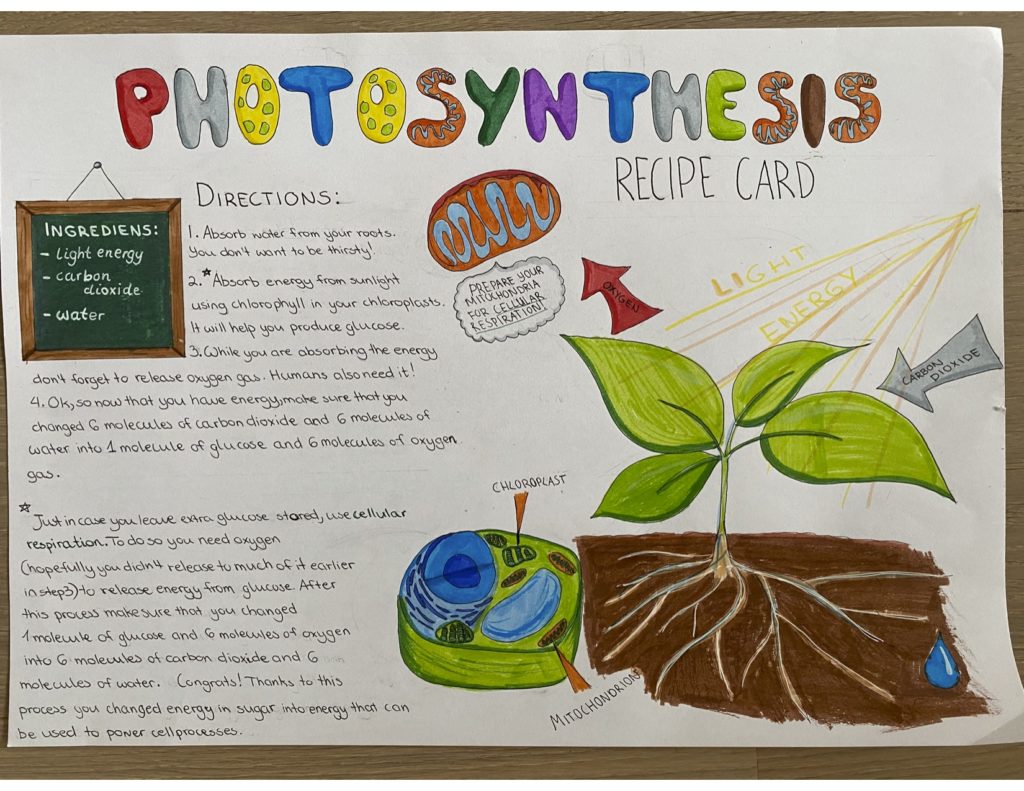 PHOTOSYNTHESIS
RECIPE CARD
INGREDIENS:
- light energy
- carbon
dioxide
- water
DIRECTIONS:
1. Absorb water from your roots.
You don't want to be thirsty!
2.* Absorb energy from sunlight
using chlorophyll in your chloroplasts.
It will help you produce glucose.
3. While you are absorbing the energy
don't forget to release oxygen gas. Humans also need it!
4. Ok, so now that you have energy, make sure that you
changed 6 molecules of carbon dioxide and 6 molecules of
water into 1 molecule of glucose and 6 molecules of oxygen
gas.
* Just in case you leave extra glucose stored, use cellular
respiration. To do so you need oxygen
(hopefully you didn't release to much of it earlier
in step 3) to release energy from glucose. After
this process make sure that you changed
1 molecule of glucose and 6 molecules of oxygen
into 6 molecules of carbon dioxide and 6
molecules of water. Congrats! Thanks to this
process you changed energy in sugar into energy that can
be used to power cell processes.
PREPARE YOUR
MITOCHONDRIA
FOR CELLULAR
RESPIRATION!
OXYGEN
LIGHT
ENERGY
CARBON
DIOXIDE
CHLOROPLAST
MITOCHONDRION